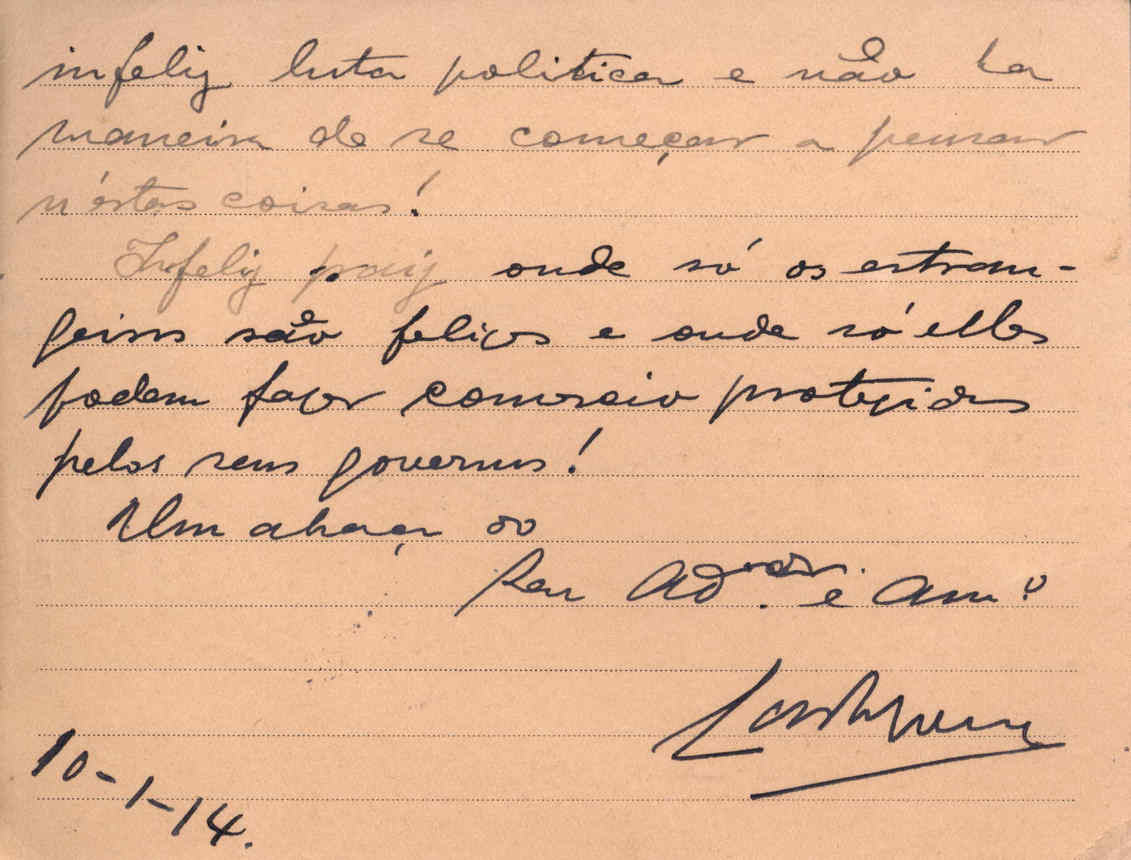 infeliz luta politica e não ha
maneira de se começar a pensar
n'éstas coisas!
Infeliz paiz onde só os estran-
geiros são felizes e onde só elles
podem fazer comercio protegidos
pelos seus governos!
Um abraço do
Seu Ad.dor e Am.º
10-1-14.